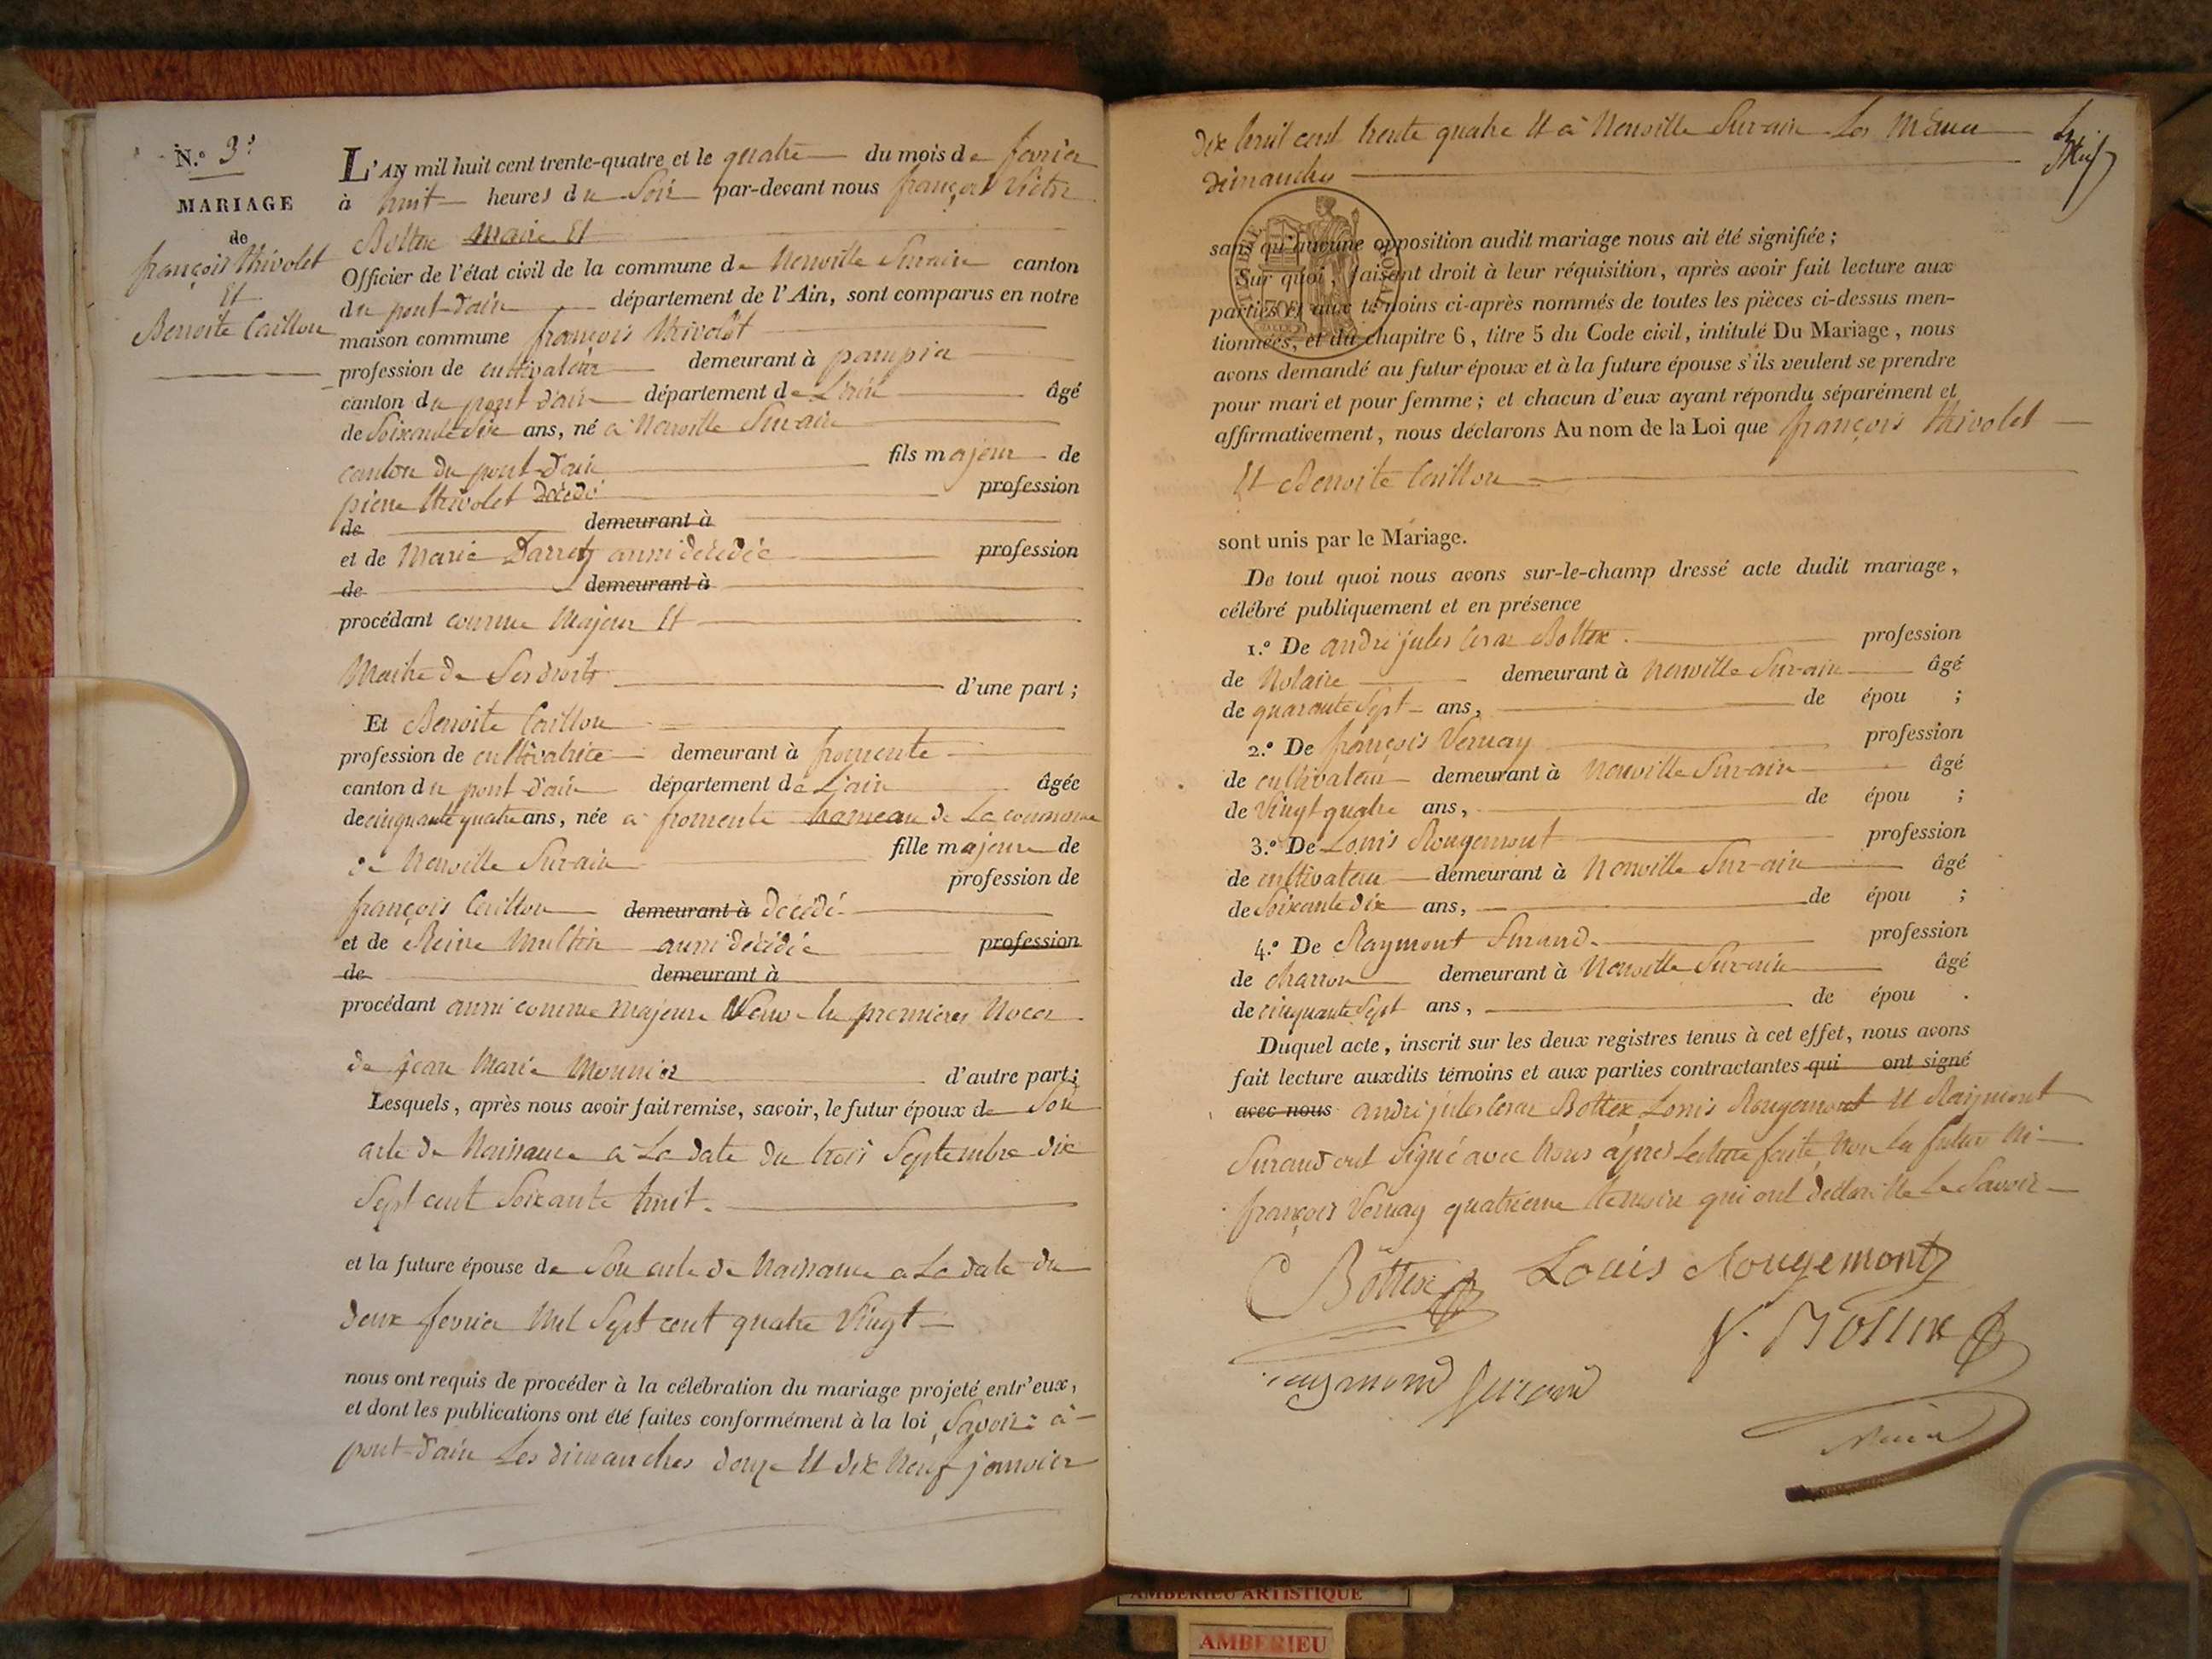 N.º 3
MARIAGE
de
françois Thivolet
Et
Benoite Caillon
L'AN mil huit cent trente-quatre et le quatre du mois de fevrier
à huit heures du Soir par-devant nous françois Victor
Bottex Maire Et
Officier de l'état civil de la commune de Neuville Surain canton
du pont-d'ain département de l'Ain, sont comparus en notre
maison commune françois Thivolet
profession de cultivateur demeurant à pampier
canton du pont d'ain département de L'ain âgé
de Soixante Six ans, né à Neuville Sur-ain
canton du pont-d'ain fils majeur de
pierre Thivolet décédé profession
de demeurant à
et de Marie Darretz aussi décédée profession
de demeurant à
procédant comme Majeur Et
Maitre de Ses droits d'une part ;
Et Benoite Caillon
profession de cultivatrice demeurant à fromente
canton du pont-d'ain département de L'ain âgée
de cinquante quatre ans, née à fromente hameau de La commune
de Neuville Sur-ain fille majeure de
profession de
françois Caillon demeurant à décédé
et de Reine aussi décédée profession
de demeurant à
procédant aussi comme majeure Veuve En premieres Noces
de jean Marie Monnier d'autre part ;
Lesquels, après nous avoir fait remise, savoir, le futur époux de Son
acte de Naissance a La date du trois Septembre dix
Sept cent Soixante huit.
et la future épouse de Son acte de Naissance a La date du
deux fevrier Mil Sept cent quatre Vingt
nous ont requis de procéder à la célébration du mariage projeté entr'eux,
et dont les publications ont été faites conformément à la loi, Savoir : à
pont-d'ain Les dimanches douze Et dix Neuf janvier
dix huit cent trente quatre Et à Neuville Sur-ain Les Même
dimanches
TIMBRE ROYAL
sans qu'aucune opposition audit mariage nous ait été signifiée ;
Sur quoi, faisant droit à leur réquisition, après avoir fait lecture aux
parties et aux témoins ci-après nommés de toutes les pièces ci-dessus men-
tionnées, et du chapitre 6, titre 5 du Code civil, intitulé Du Mariage, nous
avons demandé au futur époux et à la future épouse s'ils veulent se prendre
pour mari et pour femme ; et chacun d'eux ayant répondu séparément et
affirmativement, nous déclarons Au nom de la Loi que françois Thivolet
Et Benoite Caillon
sont unis par le Mariage.
De tout quoi nous avons sur-le-champ dressé acte dudit mariage,
célébré publiquement et en présence
1.º De andré jules Cesar Bottex. profession
de Notaire demeurant à Neuville Sur-ain âgé
de quarante Sept ans, de épou ;
2.º De françois Vernay profession
de cultivateur demeurant à Neuville Sur-ain âgé
de Vingt quatre ans, de épou ;
3.º De Louis Rougemont profession
de cultivateur demeurant à Neuville Sur-ain âgé
de Soixante dix ans, de épou ;
4.º De Raymont Surand. profession
de charron demeurant à Neuville Sur-ain âgé
de cinquante Sept ans, de épou .
Duquel acte, inscrit sur les deux registres tenus à cet effet, nous avons
fait lecture auxdits témoins et aux parties contractantes qui ont signé
avec nous andré jules Cesar Bottex, Louis Rougemont Et Raymont
Surand ont Signé avec Nous après Lecture faite, Non Les futurs Ni
françois Vernay quatrieme temoin qui ont declaré Ne Le Savoir
C Bottex Louis Rougemont
V. Bottex
Raymond Surand
Maire
AMBERIEU ARTISTIQUE
AMBERIEU